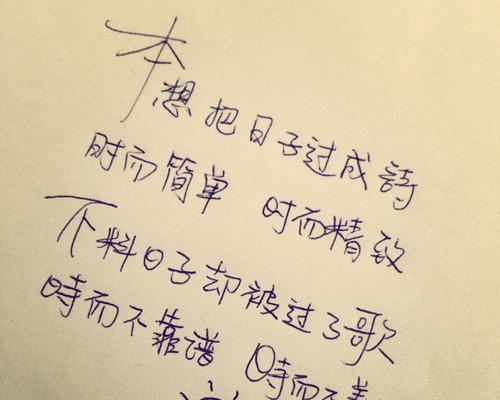 本想把日子过成詩
时而简单 时而精致
不料日子却被过了歌
時而不靠谱 時而不